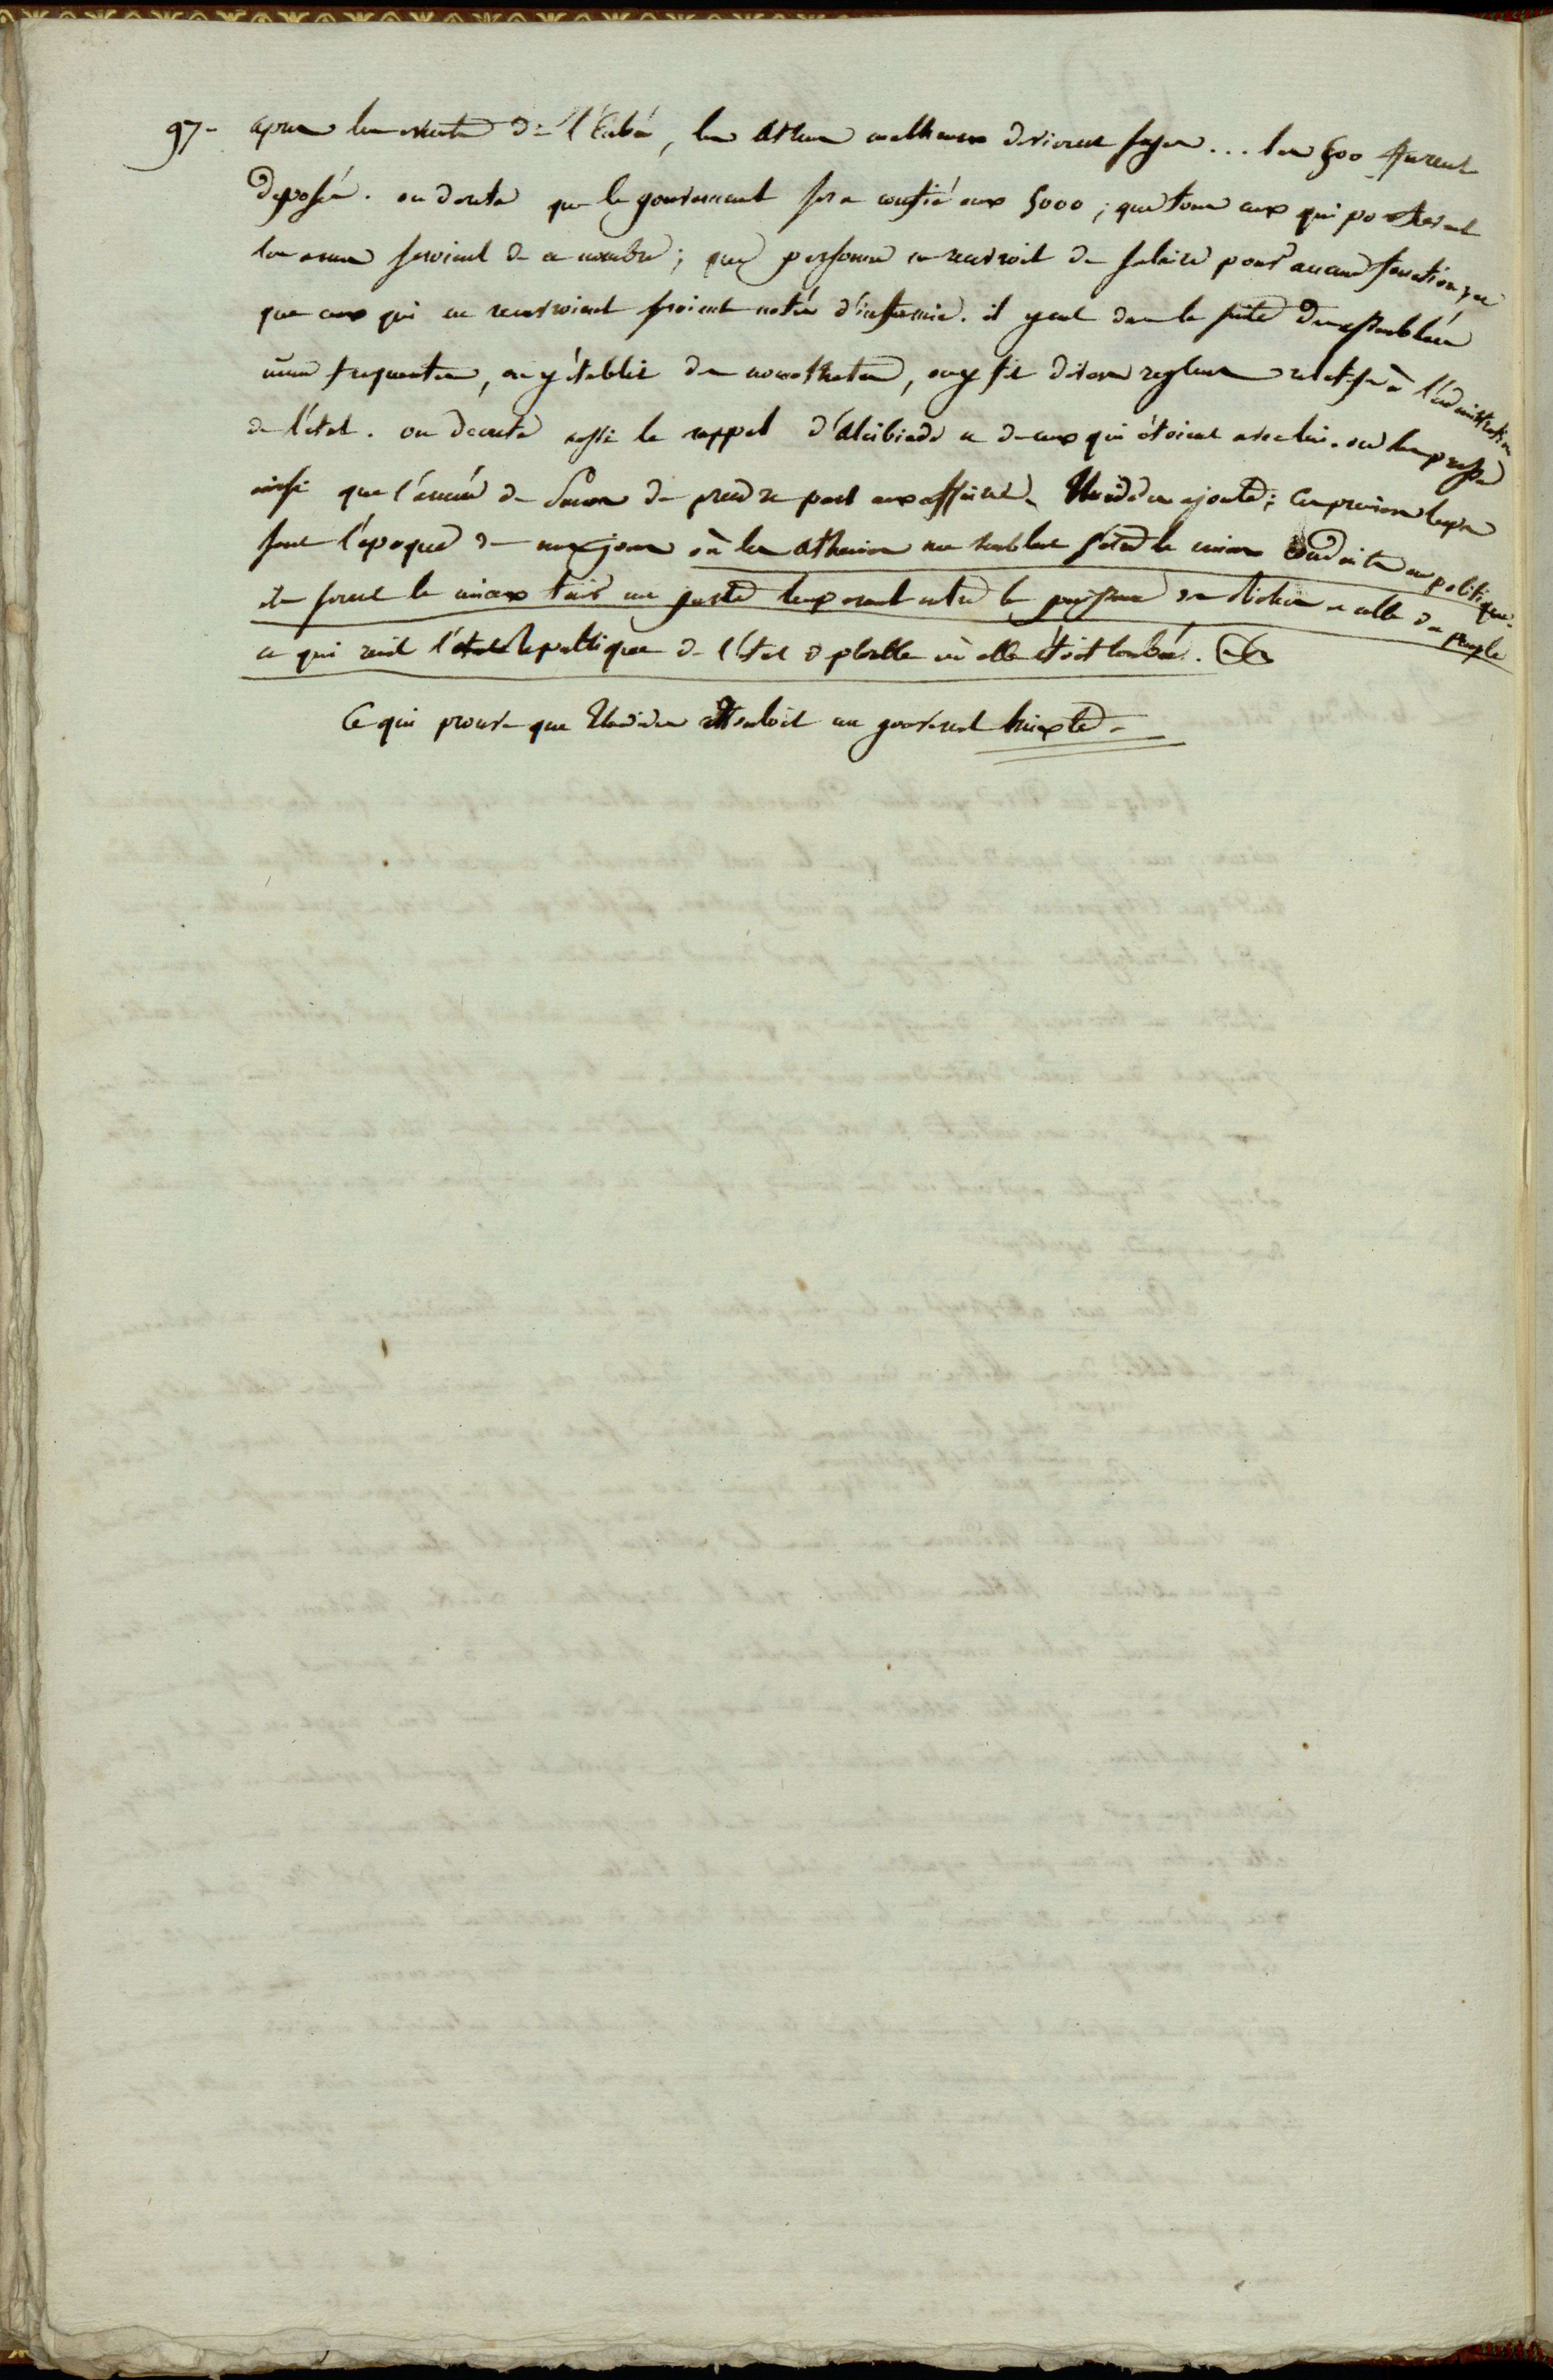 97- après la revolte de l'Eubée, les Athen malheureux devinrent sages... les 500 furent
deposés. on decreta que le gouvernement sera confié aux 5000; que tous ceux qui portoient
les armes seroient de ce nombre; que personne ne recevroit de salaire pour aucune fonction, et
que ceux qui en recevroient seroient notés d'infamie. il y eut dans la suite des assemblées
assez frequentes, on y établit des nomothetes, on y fit divers reglemens relatifs à l'administration
de l'état. on decreta aussi le rappel d'Alcibiade et de ceux qui étoient avec lui. on le pressa
ainsi que l'armée de Samos de prendre part aux affaires. Thucidide ajoute: Ces premiers temps
sont l'époque de nos jours où les Atheniens me semblent s'être le mieux conduits en politique.
ils surent le mieux tenir un juste temperament entre la puissance des riches et celle du peuple
ce qui tira la republique de l'état deplorable où elle étoit tombée.
Ce qui prouve que Thucidide entendoit un gouvernement mixte.